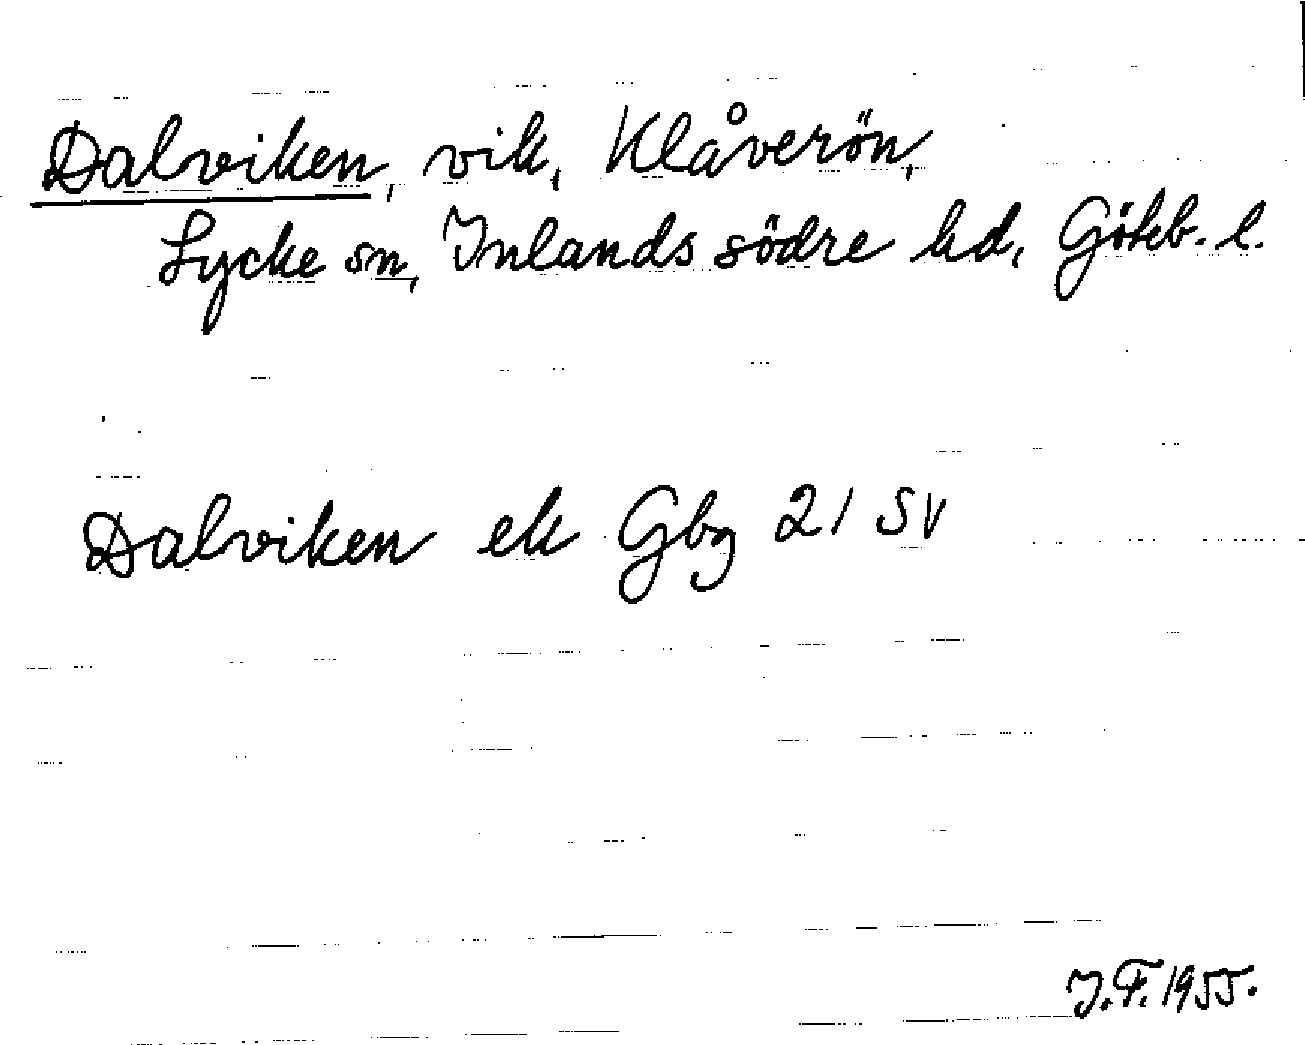 Dalviken, vik, Klåverön,
Lycke sn, Inlands södre hd, Göteb. l.
Dalviken ek Gbg 21 SV
J.F. 1955.